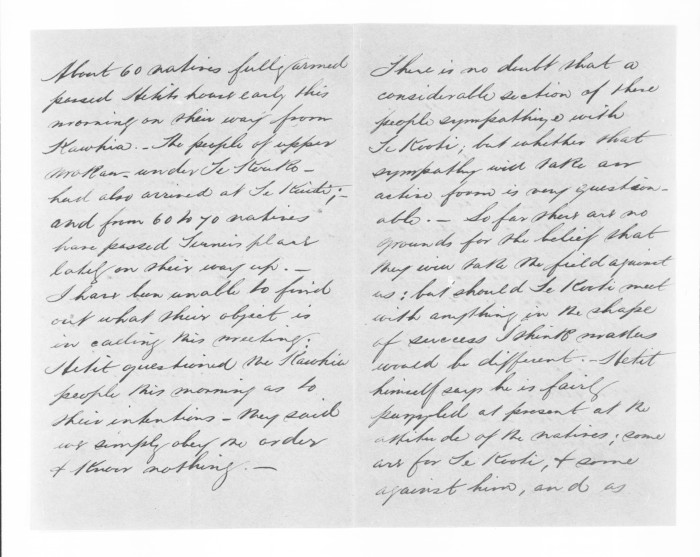 About 60 natives fully armed
passed Hetits house early this
morning on their way from
Kawhia. — The people of upper
Mokau — under Te Kouko —
had also arrived at Te Kuiti; —
and from 60 to 70 natives
have passed Turners place
lately on their way up. —
I have been unable to find
out what their object is
in calling this meeting.
Hetit questioned the Kawhia
people this morning as to
their intentions — they said
we simply obey the order
& know nothing. —
There is no doubt that a
considerable section of these
people sympathize with
Te Kooti; but whether that
sympathy will take an
active form is very question-
able. — So far there are no
grounds for the belief that
they will take the field against
us; but should Te Kooti meet
with anything in the shape
of success I think matters
would be different. — Hetit
himself says he is fairly
puzzled at present at the
attitude of the natives; some
are for Te Kooti, & some
against him, and as